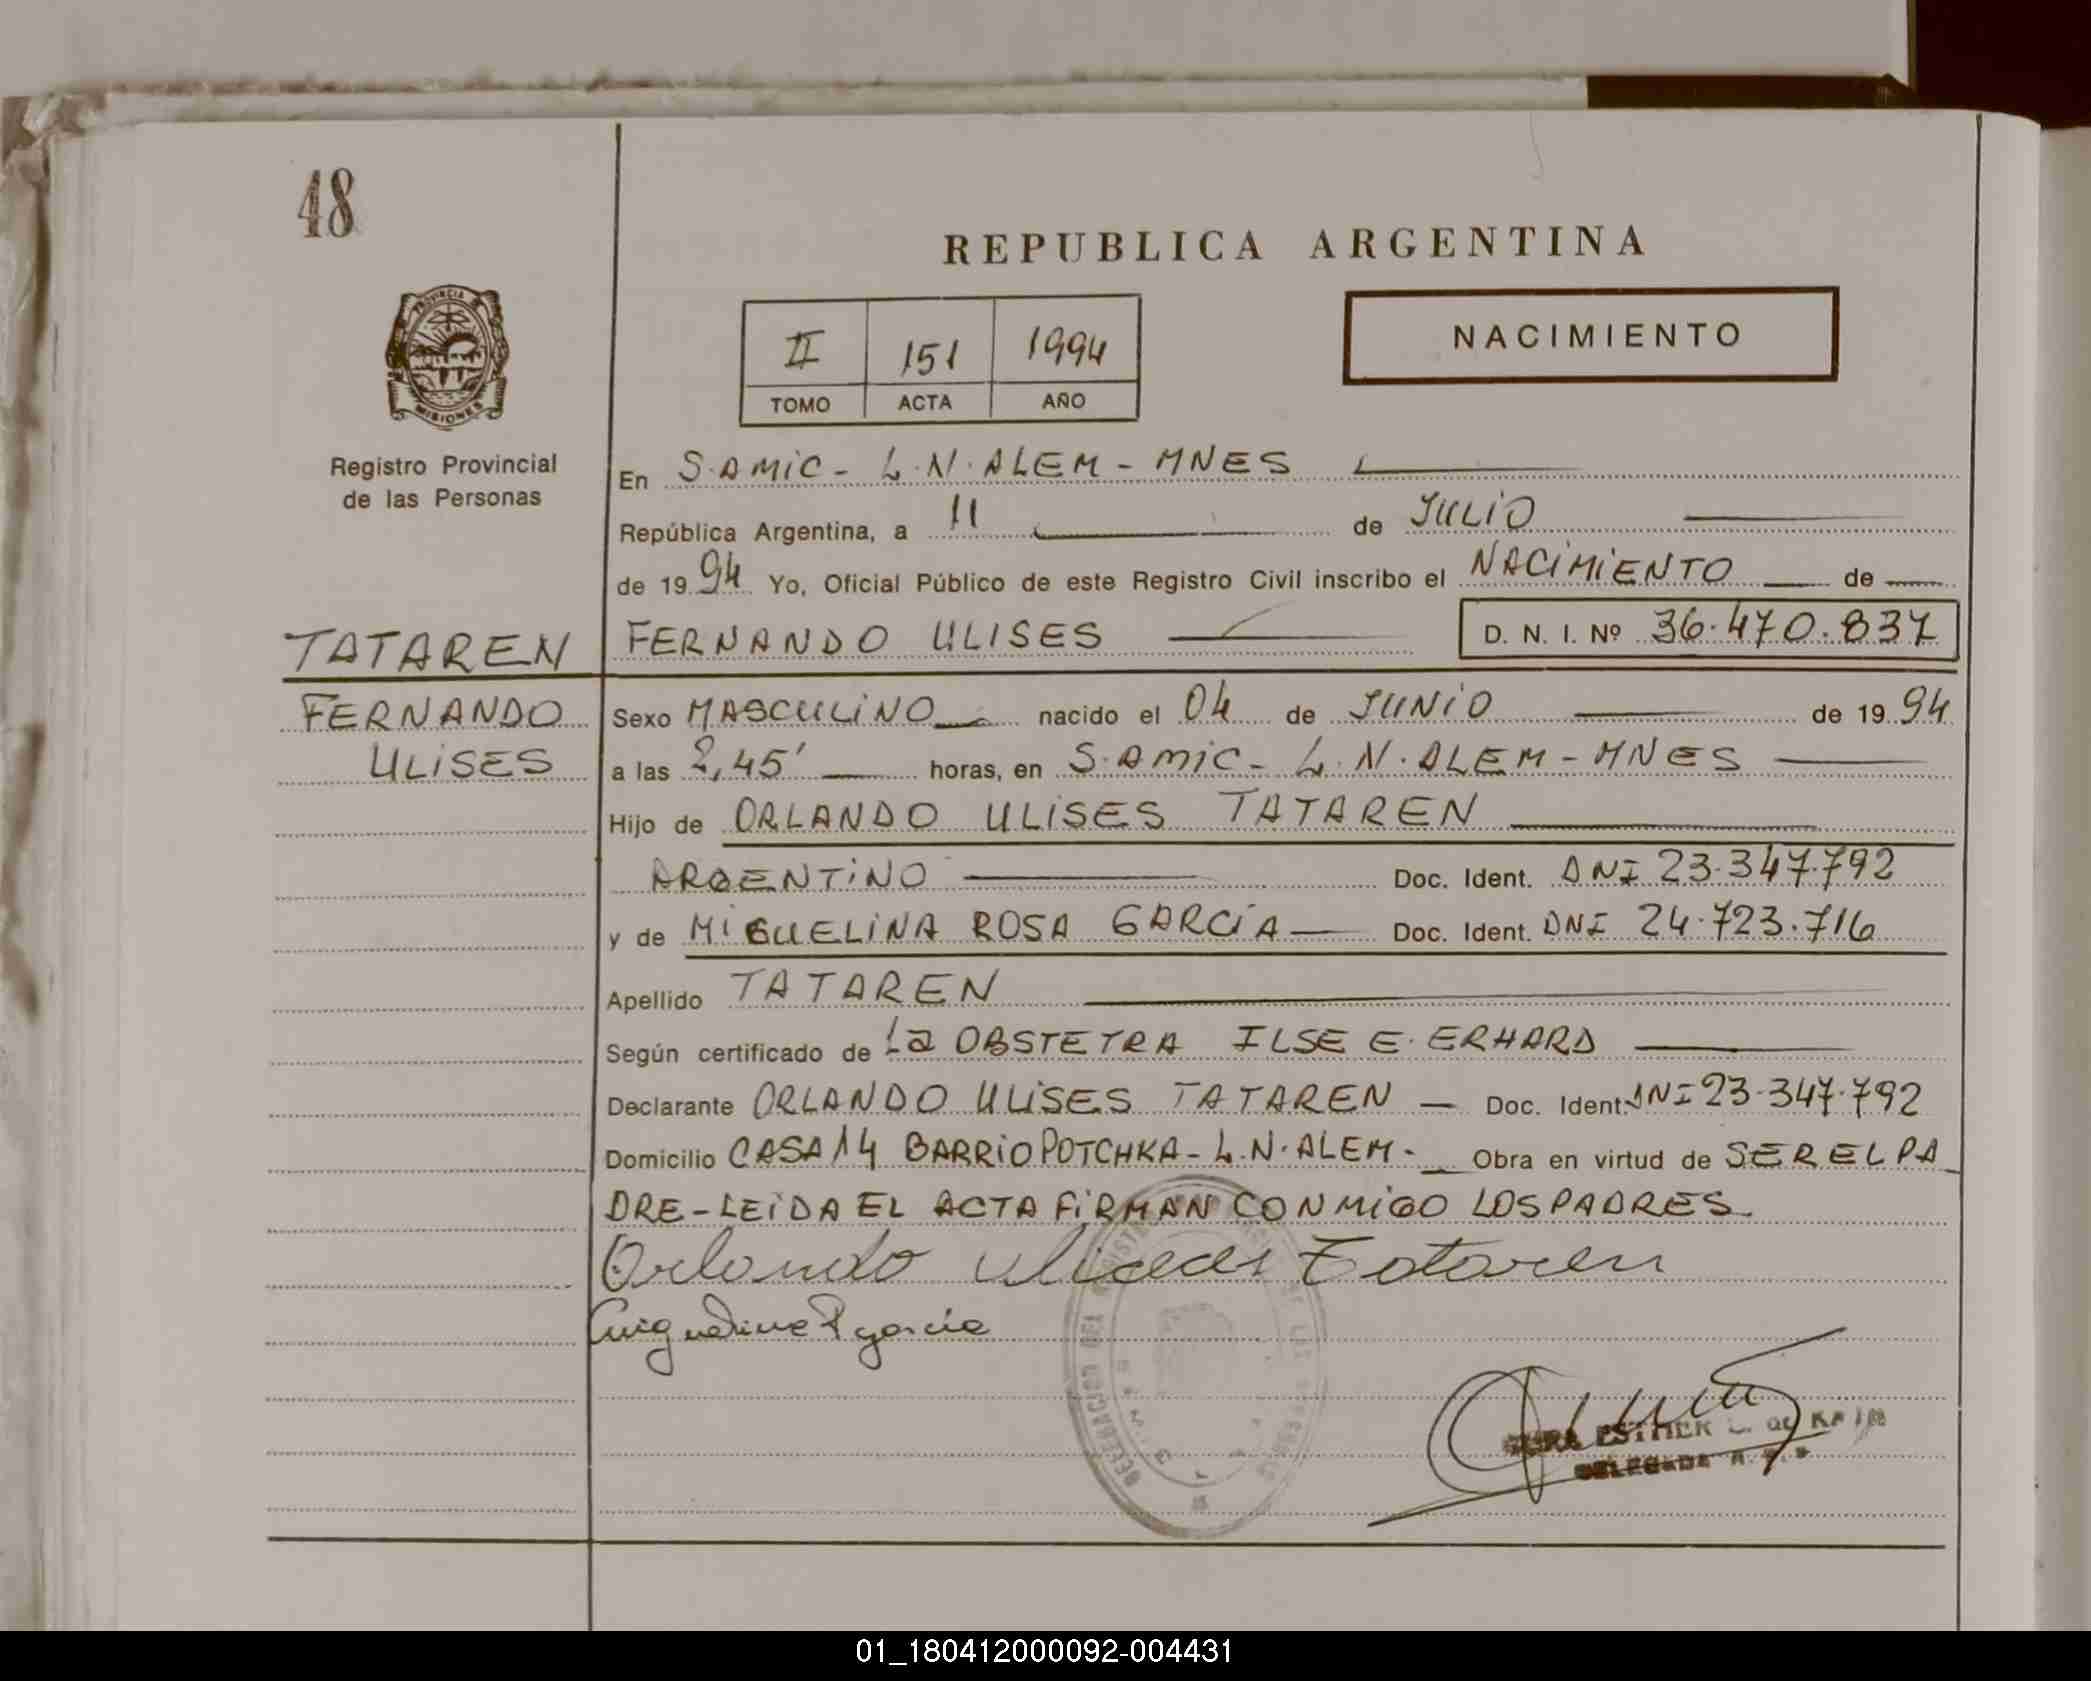 48
REPUBLICA ARGENTINA
II 151 1994
TOMO ACTA AÑO
NACIMIENTO
PROVINCIA DE
MISIONES
Registro Provincial
de las Personas
En S.AMIC - L.N.ALEM - MNES
República Argentina, a 11 de JULIO
de 1994 Yo, Oficial Público de este Registro Civil inscribo el NACIMIENTO de
TATAREN FERNANDO ULISES D. N. I. Nº 36.470.837
FERNANDO Sexo MASCULINO nacido el 04 de JUNIO de 1994
ULISES a las 2,45' horas, en S.AMIC - L.N.ALEM - MNES
Hijo de ORLANDO ULISES TATAREN
ARGENTINO Doc. Ident. DNI 23.347.792
y de MIGUELINA ROSA GARCÍA Doc. Ident. DNI 24.723.716
Apellido TATAREN
Según certificado de La OBSTETRA ILSE E. ERHARD
Declarante ORLANDO ULISES TATAREN - Doc. Ident. DNI 23.347.792
Domicilio CASA 14 BARRIO POTCHKA - L.N.ALEM - Obra en virtud de SER EL PA
DRE - LEIDA EL ACTA FIRMAN CONMIGO LOS PADRES.
Orlando Ulices Tataren
Miguelina R garcia
ESTHER
DELEGADA
01_180412000092-004431